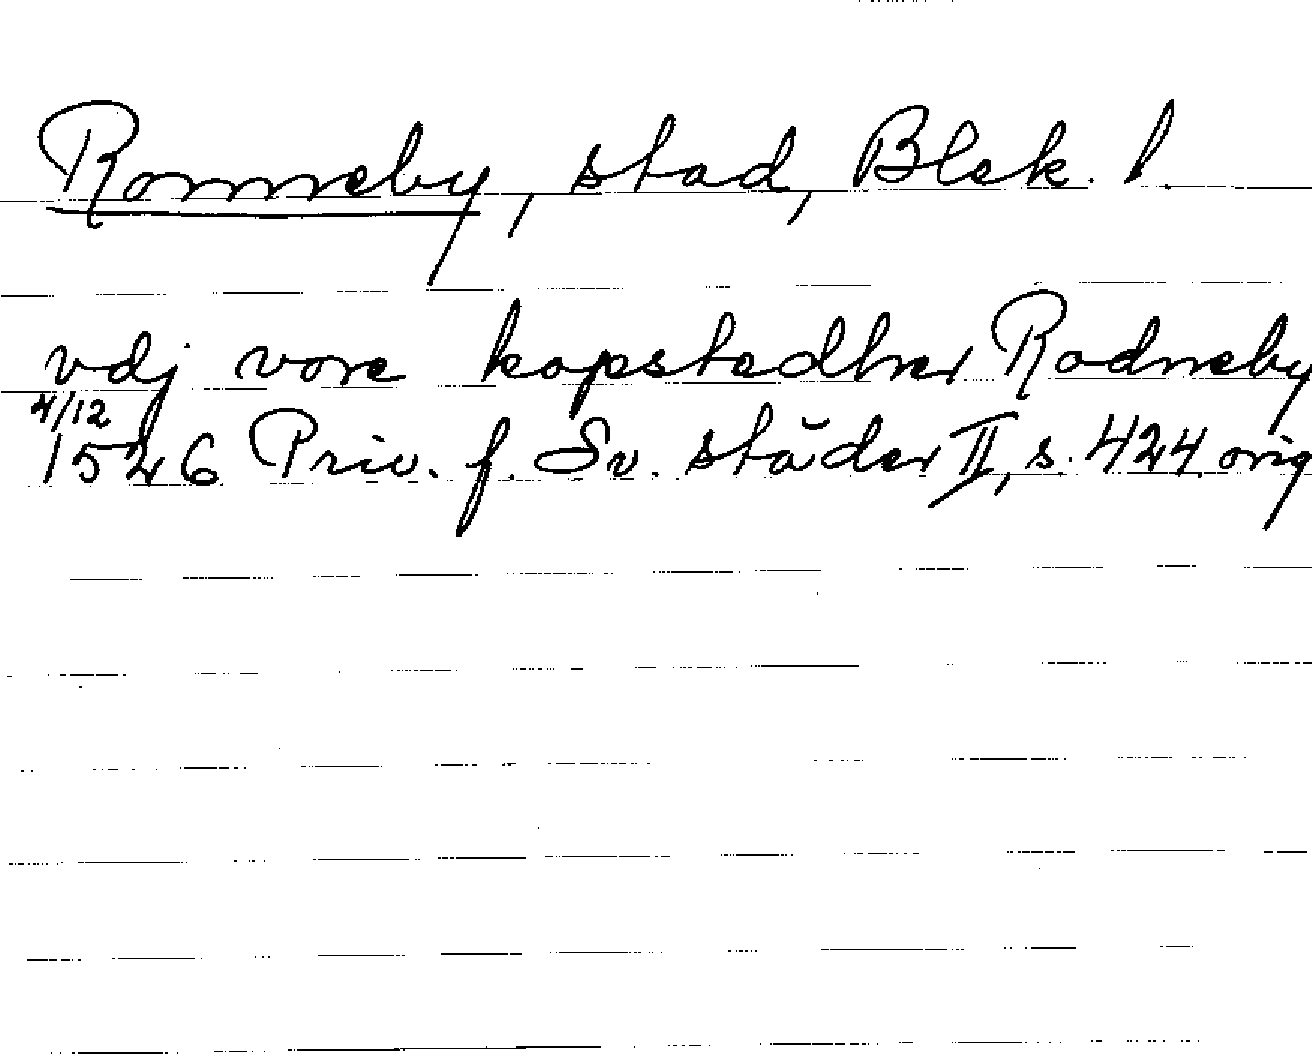 Ronneby, stad, Blek. l.
vdj vore kopstedher Rodneby
4/12
1526 Priv. f. Sv. städer II, s. 424 orig